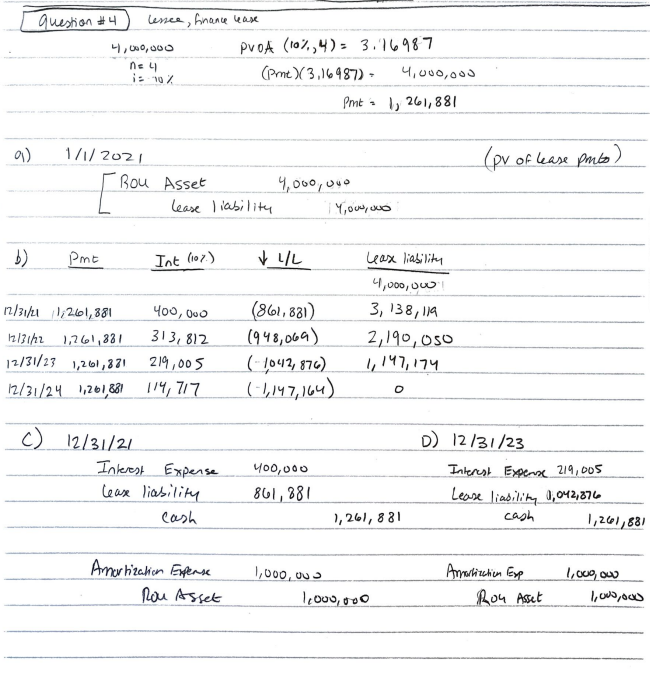 Question #4 Lessee, finance lease
4,000,000 PVOA (10%, 4) = 3.16987
n= 4 (Pmt)(3.16987) = 4,000,000
i= 10%
Pmt = 1,261,881
a) 1/1/2021 (pv of lease pmts)
ROU Asset 4,000,000
lease liability 4,000,000
b) Pmt Int (10%) ↓ L/L Lease liability
4,000,000
12/31/21 1,261,881 400,000 (861,881) 3,138,119
12/31/22 1,261,881 313,812 (948,069) 2,190,050
12/31/23 1,261,881 219,005 (1,042,876) 1,147,174
12/31/24 1,261,881 114,717 (1,147,164) 0
C) 12/31/21 D) 12/31/23
Interest Expense 400,000 Interest Expense 219,005
Lease liability 861,881 Lease liability 1,042,876
Cash 1,261,881 cash 1,261,881
Amortization Expense 1,000,000 Amortization Exp 1,000,000
ROU Asset 1,000,000 ROU Asset 1,000,000